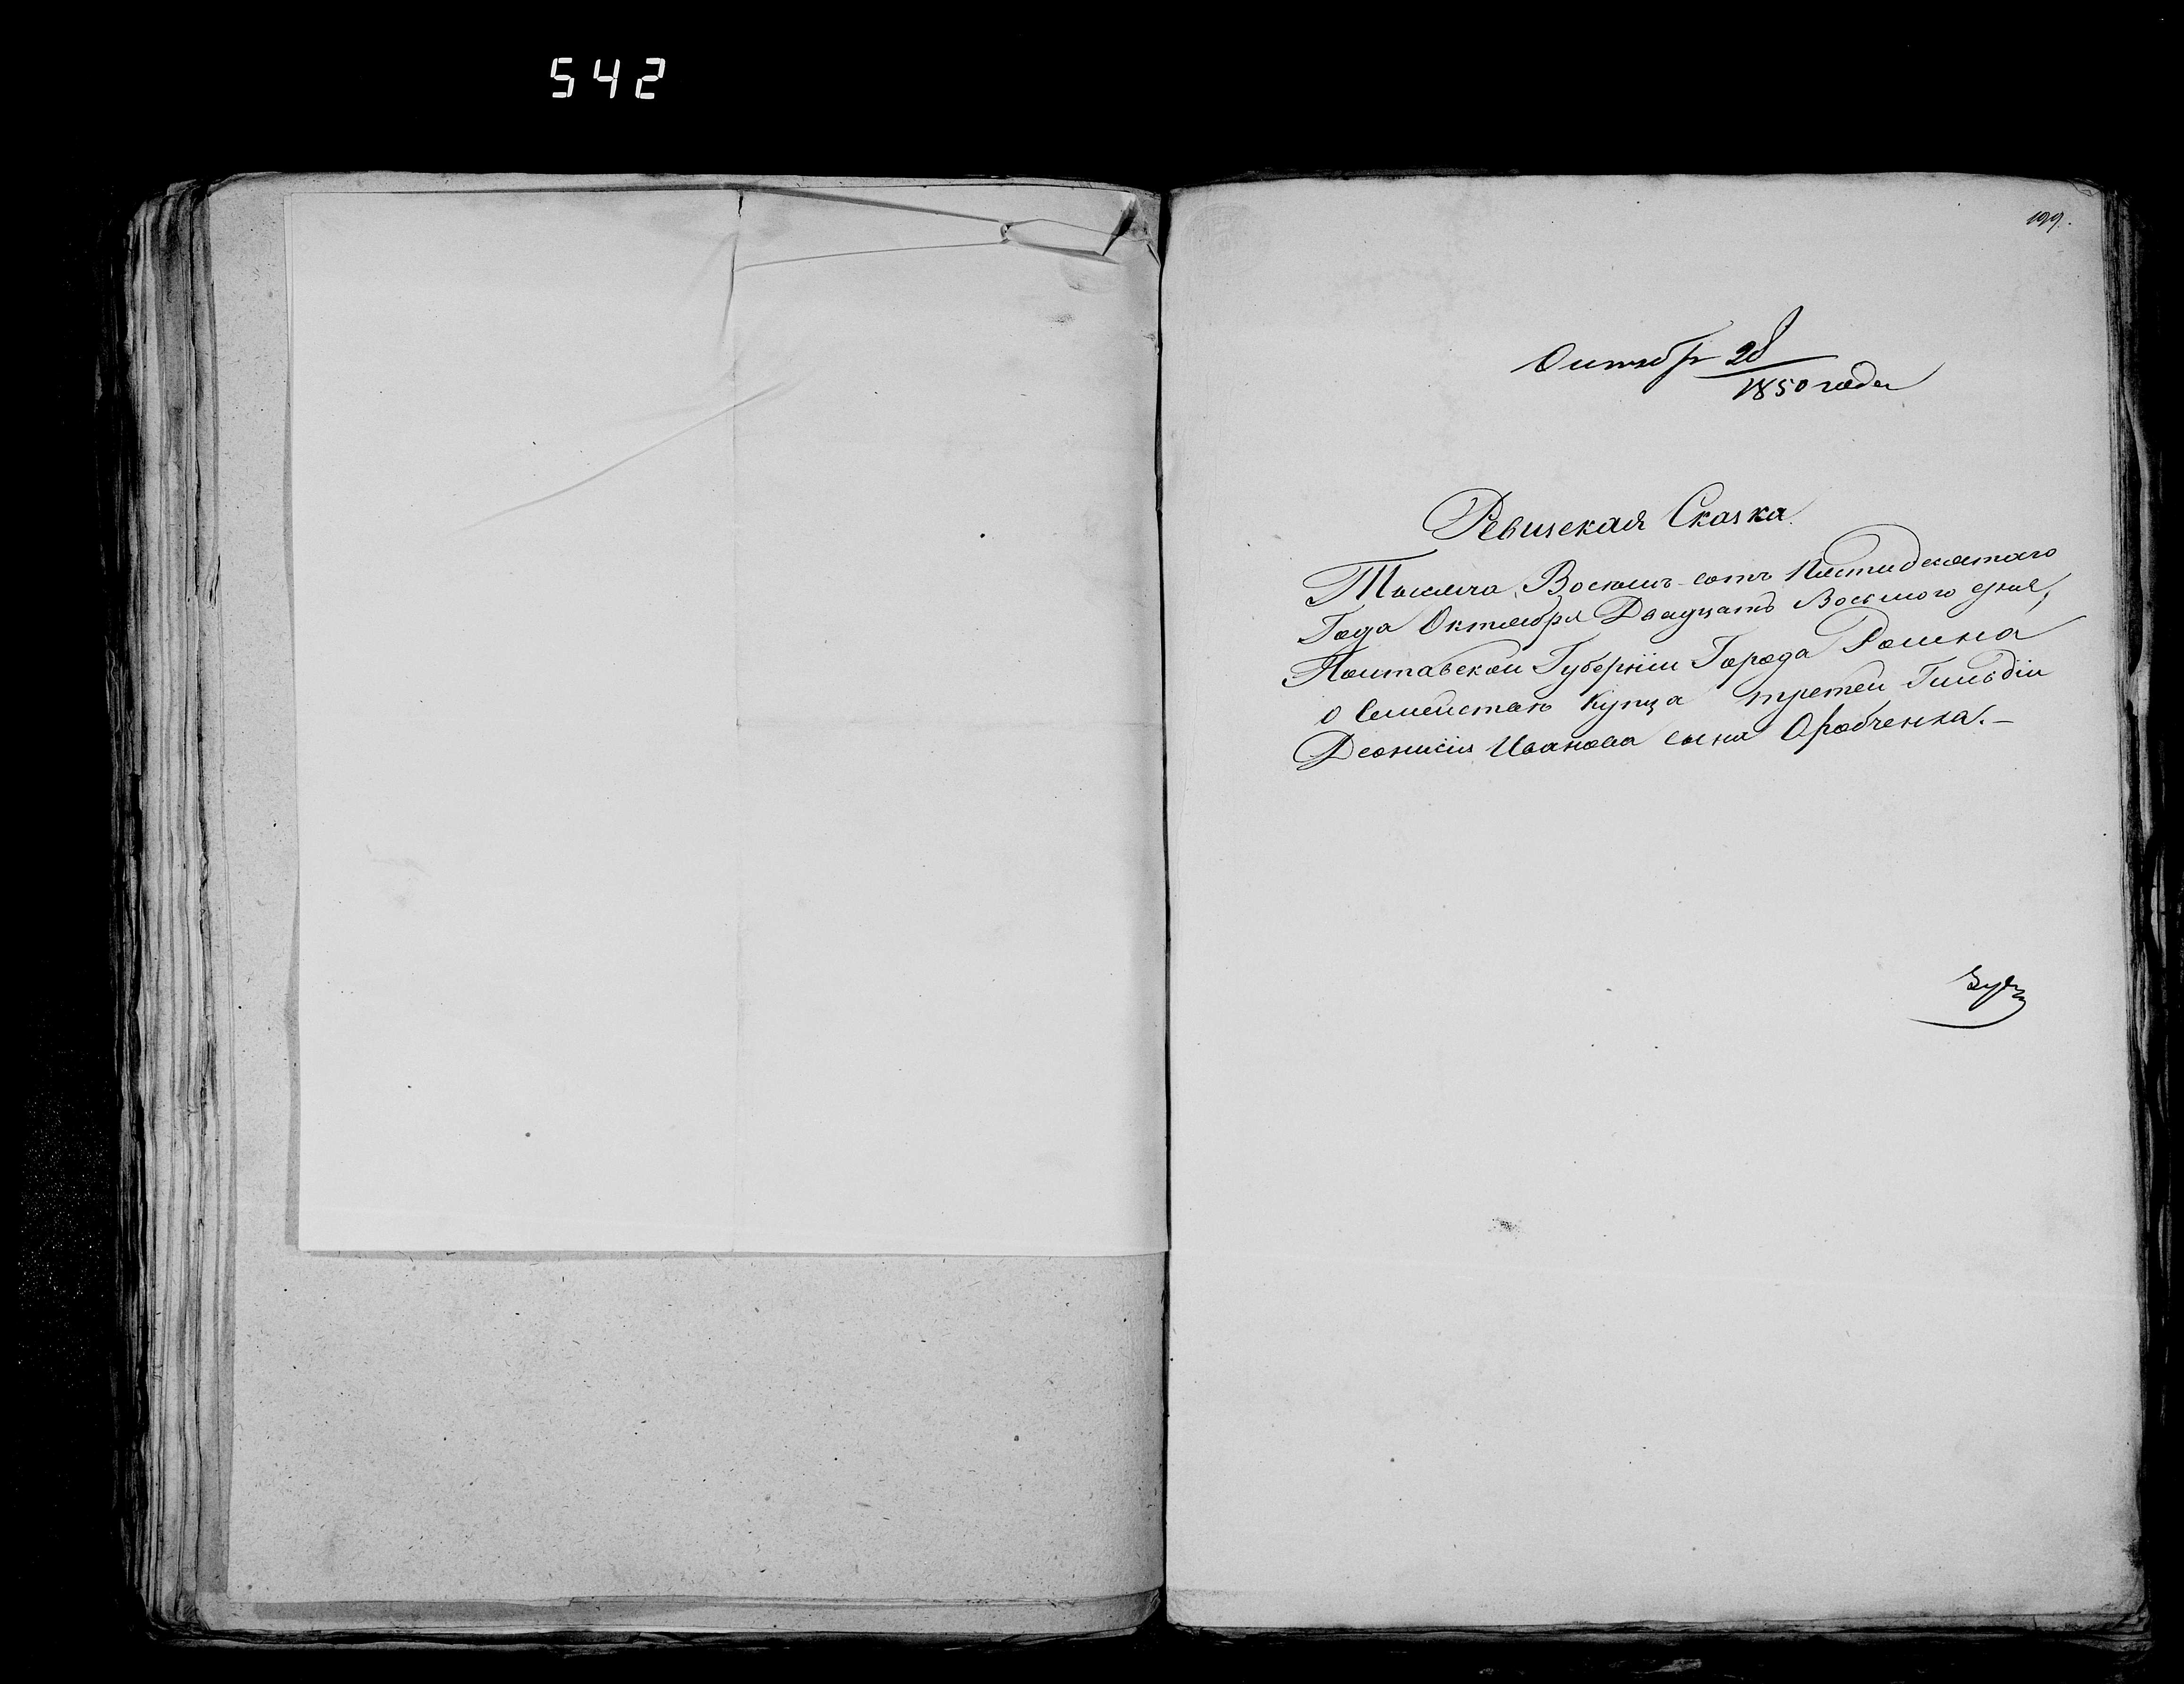 542
199.
Октября 28
1850 года
Ревизская Сказка.
Тысяча Восемь-сотъ Пятидесятаго
Года Октября Двадцать Восьмого дня,
Полтавской Губерніи Города Ромна
о Семействѣ Купца третей Гильдіи
Деонисія Иванова сына Оробченка.—